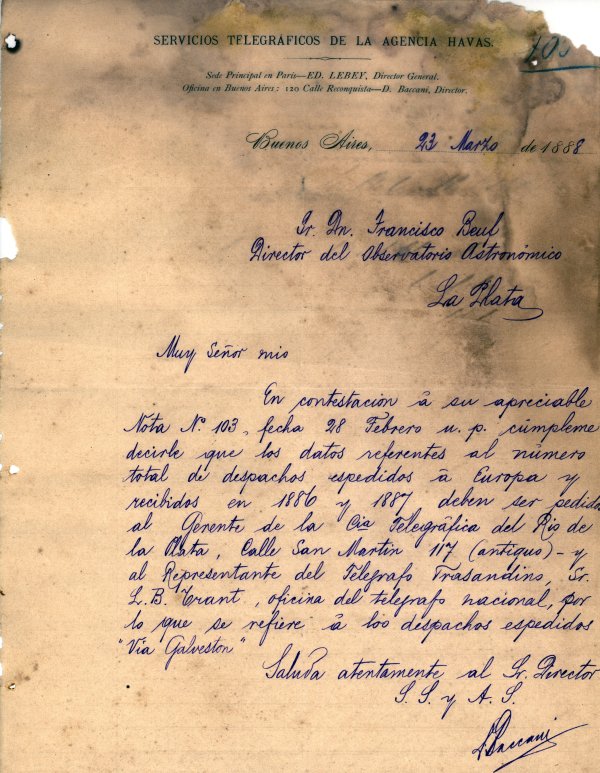 SERVICIOS TELEGRÁFICOS DE LA AGENCIA HAVAS.
103
Sede Principal en Paris—ED. LEBEY, Director General.
Oficina en Buenos Aires: 120 Calle Reconquista—D. Baccani, Director.
Buenos Aires, 23 Marzo de 1888
Sr. Dn. Francisco Beul
Director del Observatorio Astronómico
La Plata
Muy Señor mio
En contestacion à su apreciable
Nota Nº 103, fecha 28 Febrero u. p. cúmpleme
decirle que los datos referentes al número
total de despachos espedidos à Europa y
recibidos en 1886 y 1887 deben ser pedidos
al Gerente de la Cia Telegráfica del Rio de
la Plata, Calle San Martin 117 (antiguo) - y
al Representante del Telégrafo Trasandino, Sr.
L. B. Trant, oficina del telégrafo nacional, por
lo que se refiere à los despachos espedidos
"Via Galveston"
Saluda atentamente al Sr. Director
S. S. y A. S.
D Baccani